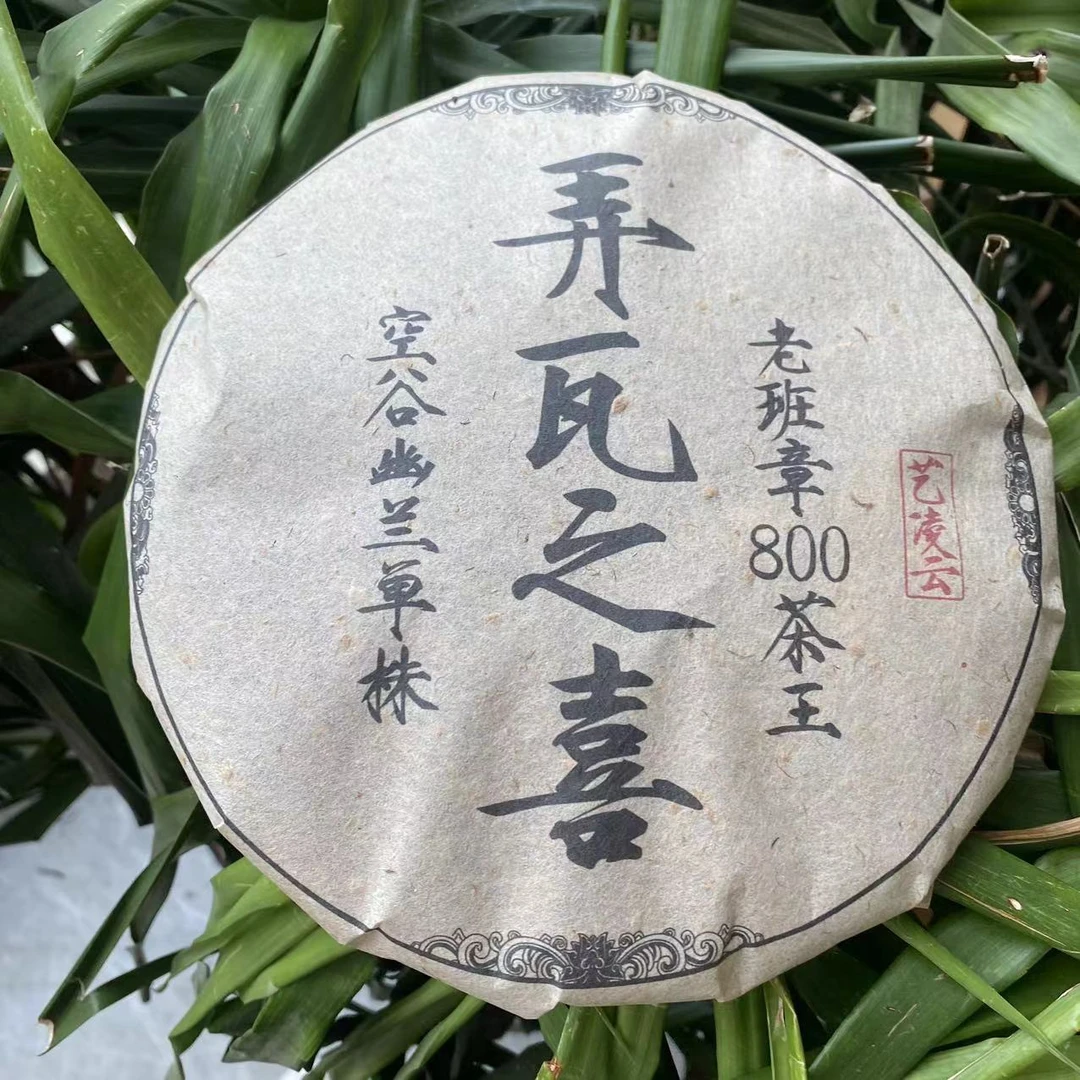 艺凌云
老班章800茶王
弄瓦之喜
空谷幽兰单株